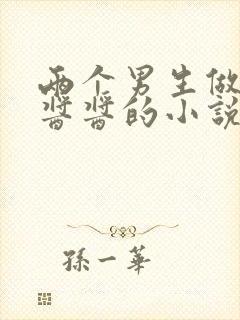 两个男生做
酱酱的小说
孙一华